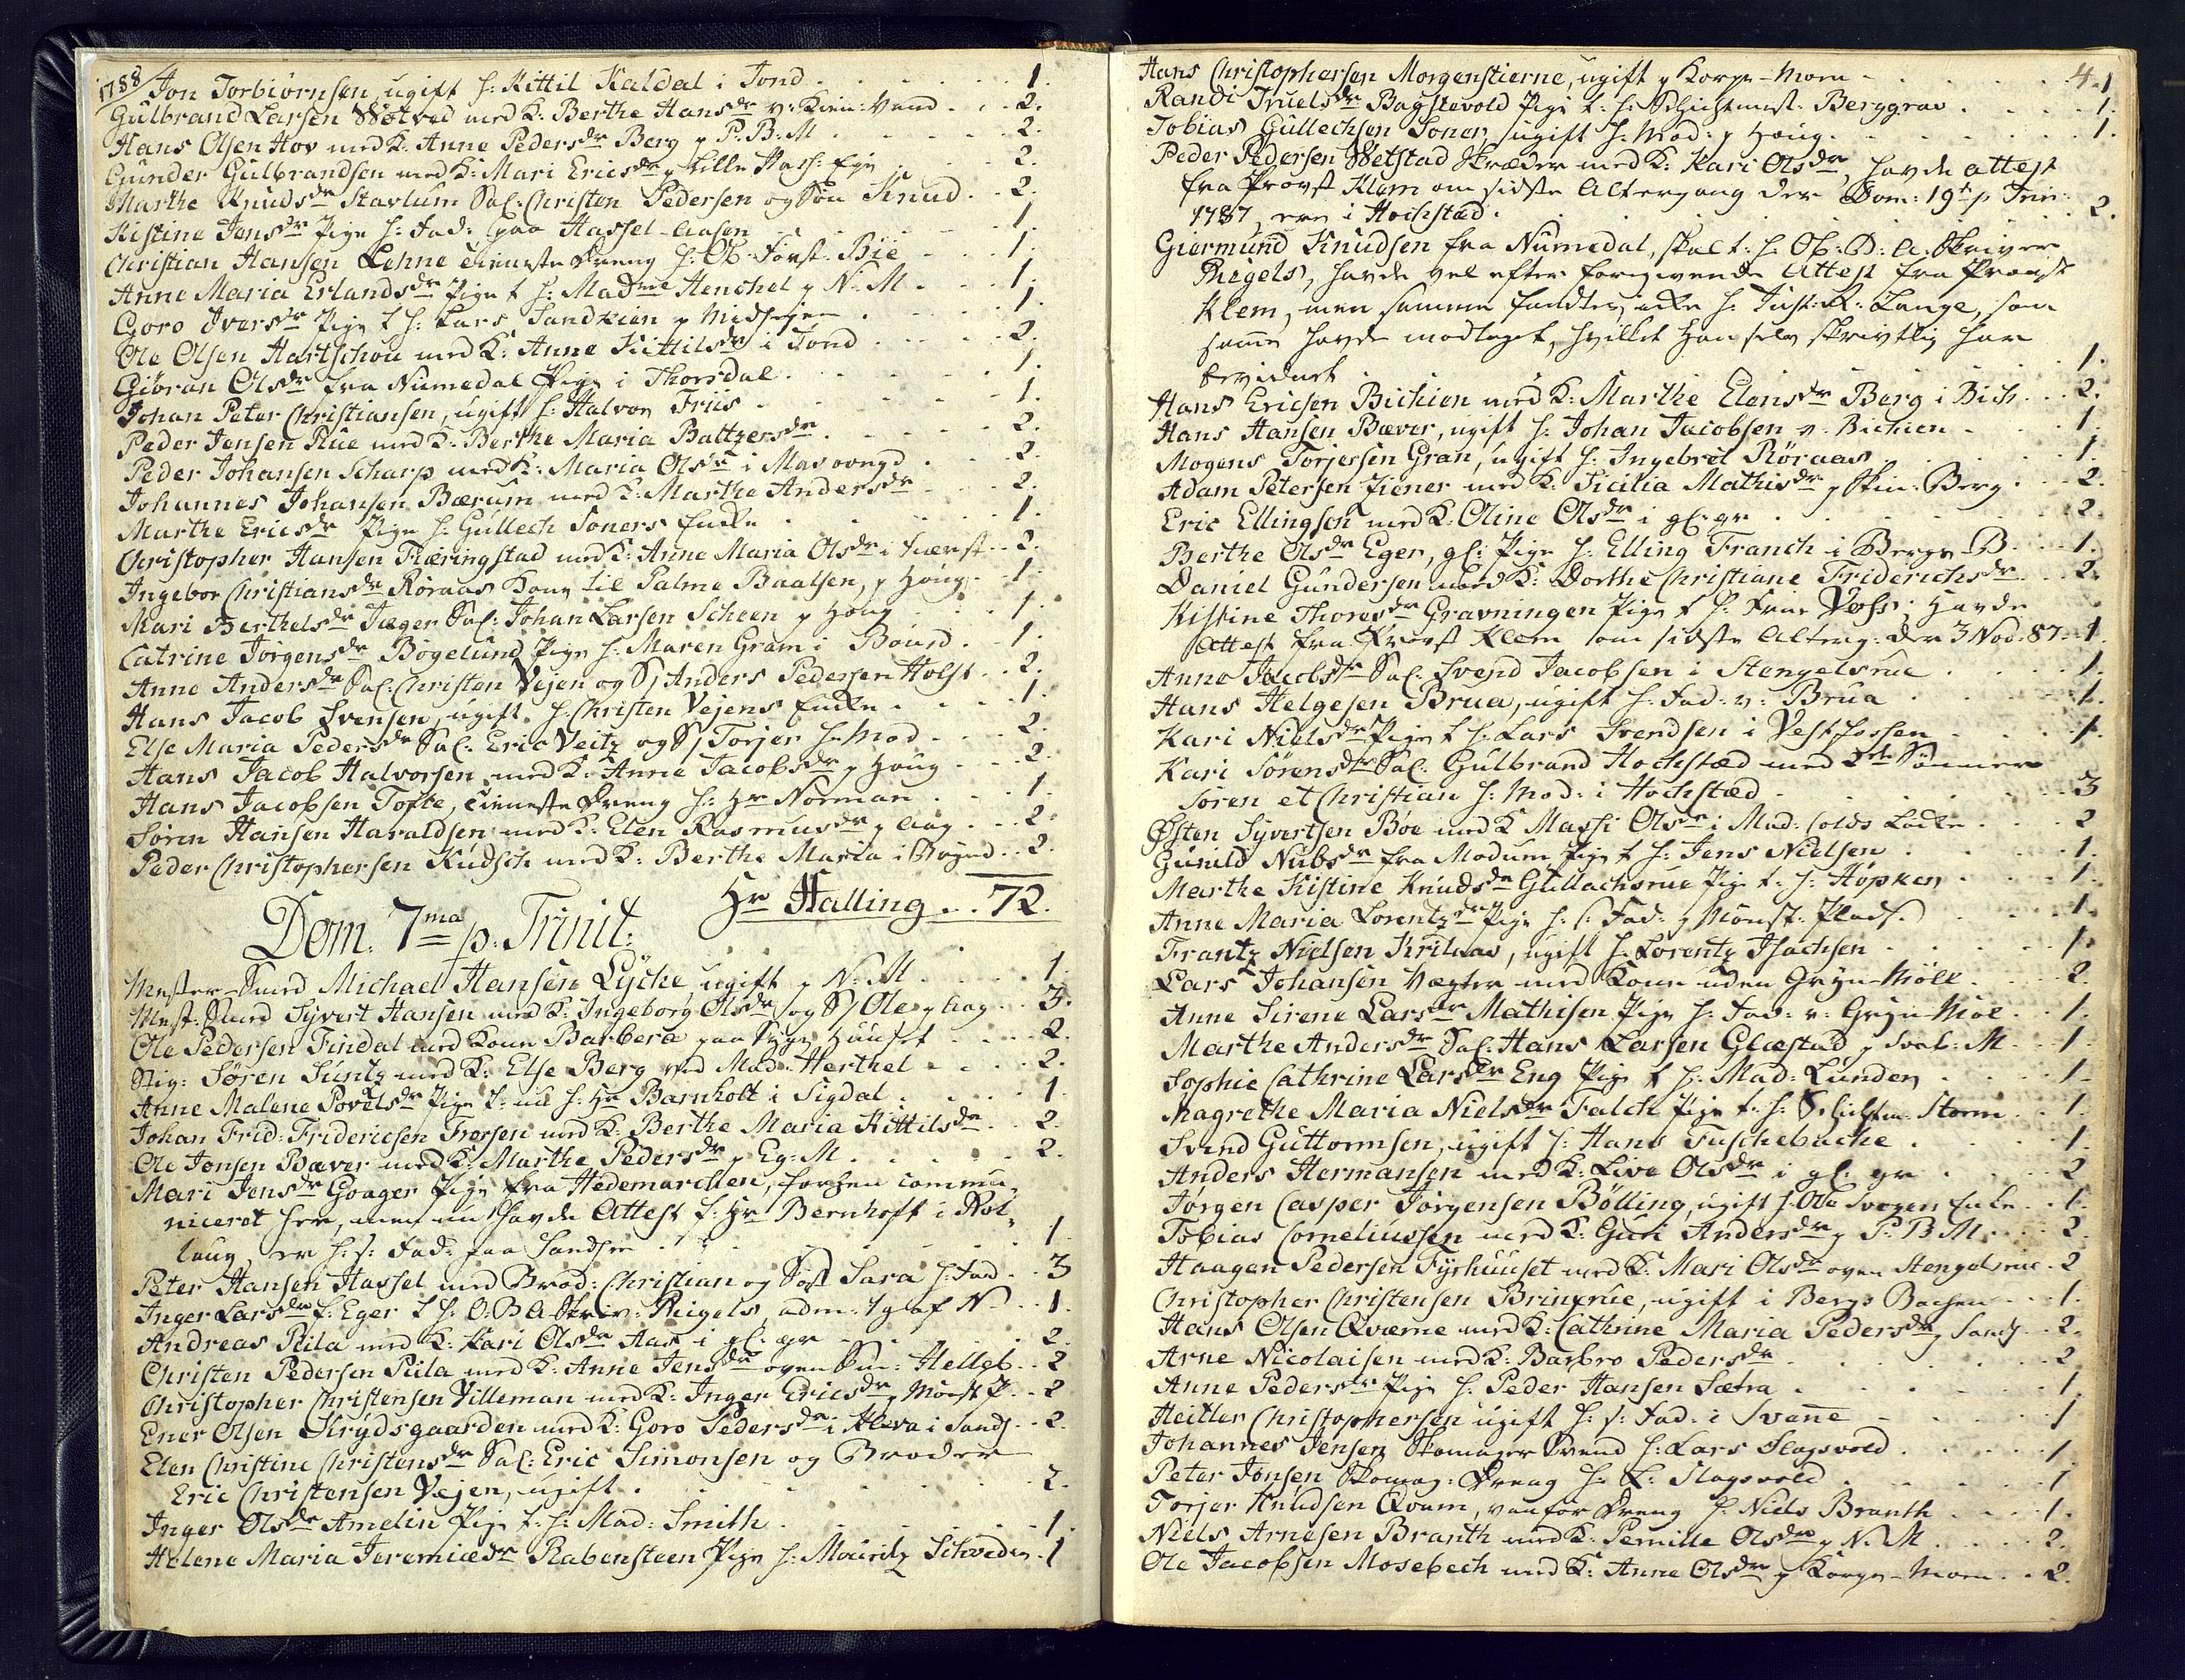 1788
Jon Torbiörnsen, ugift h: Kittil Kaldal i Tond . . . 1.
Gulbrand Larsen med K: Berthe Hansdr v: . . . 2.
Hans Olsen Hov med K: Anne Pedersdr Berg p P: B: M . . . 2.
Gunder Gulbrandsen med K: Mari Ericsdr p Lille . . . 2.
Marthe Knudsdr Stavlum Sal: Christen Pedersen og Søn Knud . . 2.
Kistine Jensdr Pige h: Fad: paa Hassel-Aasen . . . 1.
Christian Hansen Lehne tieneste Dreng h: Ob: Forst: Bie . . . 1.
Anne Maria Erlandsdr Pige t h: Madme Henchel p N: M . . . 1.
Goro Iversdr Pige t h: Lars Sandkien p . . . 1.
Ole Olsen Hartschou med K: Anne Kittilsdr i Tond . . . 2.
Giöran Olsdr fra Numedal Pige i Thorsdal . . . 1.
Johan Peter Christiansen, ugift h: Halvor Friis . . . 1.
Peder Jensen Rue med K: Berthe Maria Baltzersdr . . . 2.
Peder Johansen Scharp med K: Maria Olsdr i . . . 2.
Johannes Johansen Bærum med K: Marthe Andersdr . . . 2.
Marthe Ericsdr Pige h: Gullech Soners Encke . . . 1.
Christopher Hansen Fiæringstad med K: Anne Maria Olsdr i . . 2.
Ingebor Christiansdr Röraas Kone til Palme Baalsen, p Houg . . 1.
Mari Berthelsdr Jæger Sal: Johan Larsen Scheen p Houg . . 1.
Catrine Jörgensdr Bögelund Pige h: Maren Gram i . . 1.
Anne Andersdr Sal: Christen Vejen og S/ Anders Pedersen Holst . . 2.
Hans Jacob Svensen, ugift h: Christen Vejens Encke . . . 1.
Else Maria Pedersdr Sal: Eric Veitz og S/ Torjer h: Mod . . . 2.
Hans Jacob Halvorsen med K: Anne Jacobsdr p Houg . . . 2.
Hans Jacobsen Tofte, tieneste Dreng h: Hr Norman . . . 1.
Sören Hansen Haraldsen med K: Elen Rasmusdr p Aag . . . 2.
Peder Christophersen Kudsch med K: Berthe Maria i . . 2.
Hr Halling . . 72.
Dom. 7ma p. Trinit:
Mester-Smed Michael Hansen Lyche, ugift p N: M . . . 1.
Mest: Smed Syvert Hansen med K: Ingeborg Olsdr og S/ Ole p Aag . . 3.
Ole Pedersen Findal med Kone Barbera paa Syge Huuset . . . 2.
Stig: Sören Suntz med K: Else Berg ved Mad: Herthel . . . 2.
Anne Malene Povelsdr Pige t: nu h: Hr Barnholt i Sigdal . . . 1
Johan Frid: Fridericsen Frorsen med K: Berthe Maria Kittilsdr . . 2.
Ole Jonsen Bæver med K: Marthe Pedersdr p Eg: M . . . 2.
Mari Jensdr Goager Pige fra Hedemarchen, forhen commu-
niceret her, men nu havde Attest f: Hr Bernhoft i
laug, er h: s: Fad: paa Sandsv: . . . 1
Peter Hansen Hassel med Brod: Christian og Søst: Sara h: Fad . . 3
Inger Larsdr f: Eger t h: O: B A Skriv: Riegels, adm: af N . . 1.
Andreas Pila med K: Kari Olsdr Aas i gl: gr . . . 2.
Christen Pedersen Pila med K: Anne Jensdr oven Helleb . . 2
Christopher Christensen Villeman med K: Inger Ericsdr p Mönst: P . . 2
Ener Olsen Krydsgaarden med K: Goro Pedersdr i Kleva i Sands . . 2.
Elen Christine Christensdr Sal: Eric Simonsen og Broder
Eric Christensen Vejen, ugift . . . 2.
Inger Olsdr Amelin Pige t: h: Mad: Smith . . . 1.
Helene Maria Jeremiædr Rabensteen Pige h: Mouritz Schveder . 1
Hans Christophersen Morgenstierne, ugift p Korge-Moen . . . 1
Randi Truelsdr Bagstevold Pige t: h: Schichtmest: Berggrav . . . 1.
Tobias Gullechsen Soner, ugift h: Mod: p Houg . . . 1.
Peder Pedersen Wetstad Skræder med K: Kari Olsdr, havde attest
fra Provst Klem om sidste Altergang der Dom: 19de p Trin:
1787, ere i Hochstad . . . 2.
Giermund Knudsen fra Numedal, skal t: h: Ob: B: A: Skriver
Riegels, havde vel efter foregivende Attest fra Provst
Klem, men samme fandtes icke h: Just: R: Lange, som
samme havde modtaget, hvilket han selv skrivtlig har
bevidnet . . . 1.
Hans Ericsen Bickien med K: Marthe Elensdr Berg i Bich . . . 2.
Hans Hansen Bæver, ugift h: Johan Jacobsen v: Bichien . . . 1.
Mogens Torjersen Gran, ugift h: Ingebret Röraas . . . 1.
Adam Petersen Ziener med K: Sicilia Mathisdr p Skin: Berg . . . 2.
Eric Ellingsen med K: Oline Olsdr i gl: gr . . . 2.
Berthe Olsdr Eger, gl: Pige h: Elling Franch i Berge-B . . . 1.
Daniel Gundersen med K: Dorthe Christiane Friderichsdr . . 2.
Kistine Thoresdr Gravningen Pige t h: Voss; havde
Attest fra Provst Klem om sidste Alterg: der 3 Nov: 87 . 1.
Anne Jacobsdr Sal: Svend Jacobsen i Stengelsrue . . . 1.
Hans Helgesen Brua, ugift h: Fad: v: Brua . . . 1.
Kari Nielsdr Pige t h: Lars Svendsen i Vestfossen . . . 1.
Kari Sörensdr Sal: Gulbrand Hochstæd med 2de Sönner
Sören et Christian h: Mod: i Hochstæd . . . 3
Østen Syvertsen Böe med K: Massi Olsdr i Mad: Colds Löcke . . 2
Gunild Nubsdr fra Modum Pige t h: Jens Nielsen . . . 1.
Marthe Kistine Knudsdr Gullachsrue Pige t: h: Höpken . . . 1.
Anne Maria Lorentzdr Pige h: s: Fad: p Mönst: Plads . . . 1.
Frantz Nielsen Krilaas, ugift h: Lorentz Isachsen . . . 1.
Lars Johansen Vægter med Kone uden Gryn-Mölle . . . 2.
Anne Sirene Larsdr Mathisen Pige h: Fad: v: Gryn-Möl . . 1.
Marthe Andersdr Sal: Hans Larsen Glæstad p Svab: M . . . 1.
Sophie Cathrine Larsdr Eng Pige t h: Mad: Lunden . . . 1.
Magrethe Maria Nielsdr Falch Pige t: h: Schichtm: Storm . . 1.
Svend Guttormsen, ugift h: Hans Fuschebache . . . 1.
Anders Hermansen med K: Live Olsdr i gl: gr . . . 2
Jörgen Casper Jörgensen Bölling, ugift h: Ole Enke . . 1.
Tobias Corneliussen med K: Guri Andersdr p P: B M . . . 2.
Haagen Pedersen Fyrhuuset med K: Mari Olsdr oven Stengelsrue . 2
Christopher Christensen Brinxrue, ugift i Bergs Bachen . . 1.
Hans Olsen Qværne med K: Cathrine Maria Pedersdr p Sands . . 2.
Arne Nicolaisen med K: Barbro Pedersdr . . . 2
Anne Pedersdr Pige h: Peder Hansen Sætra . . . 1.
Heitler Christophersen ugift h: s: Fad: i Svene . . . 1
Johannes Jensen Skomager Svend h: Lars Slagsvold . . . 1.
Peter Jonsen Skomag: Dreng h: L: Slagsvold . . . 1
Torjer Knudsen Qvam, vanför Dreng h: Niels Branth . . . 1.
Niels Arnesen Branth med K: Pernille Olsdr p N: M . . . 2.
Ole Jacobsen Mosebech med K: Anne Olsdr p Korge-Moen . . 2.